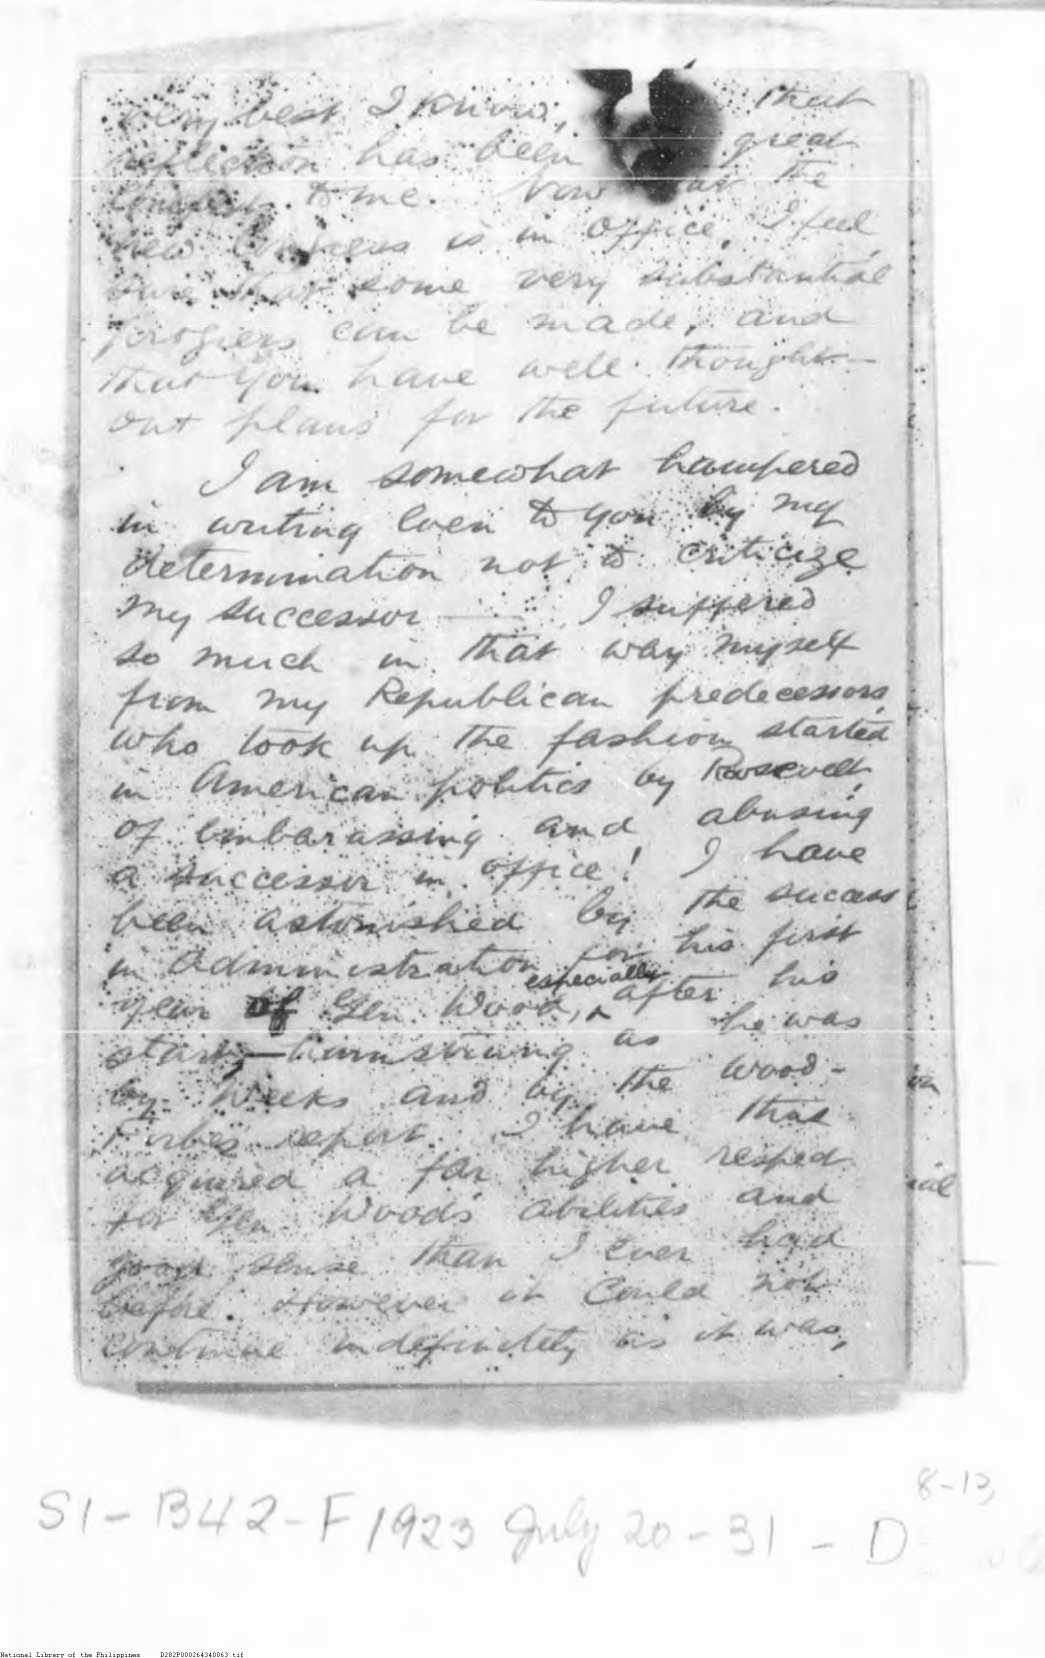 very best I know, that
reflection has been great
comfort to me. Now that the
new Congress is in office, I feel
sure that some very substantial
progress can be made, and
that you have well thought-
out plans for the future.
I am somewhat hampered
in writing even to you by my
determination not to criticize
my successor — I suffered
so much in that way myself
from my Republican predecessors
who took up the fashion started
in American politics by Roosevelt,
of embarassing and abusing
a successor in office! I have
been astonished by the success
in administration for his first
year of Gen. Wood, especially after his
start, — hamstrung as he was
by Weeks and by the Wood-
Forbes report. I have thus
acquired a far higher respect
for Gen. Wood's abilities and
good sense than I ever had
before. However it could not
continue indefinitely as it was,
on
ial
8-13
S1-B42-F1923 July 20-31-D
National Library of the Philippines D282P000264340063.tif